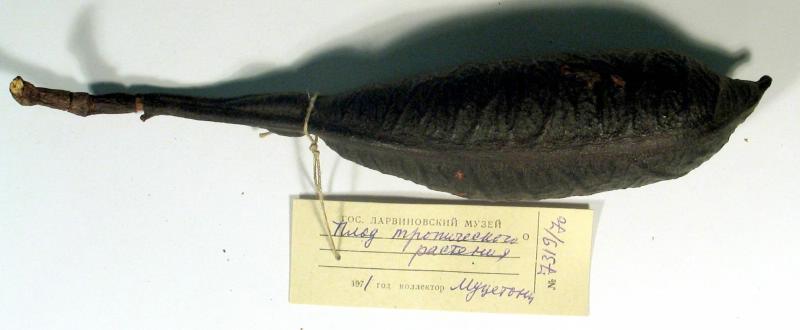 ГОС. ДАРВИНОВСКИЙ МУЗЕЙ
Плод тропического
растения
1971 год коллектор
№ 7319/70